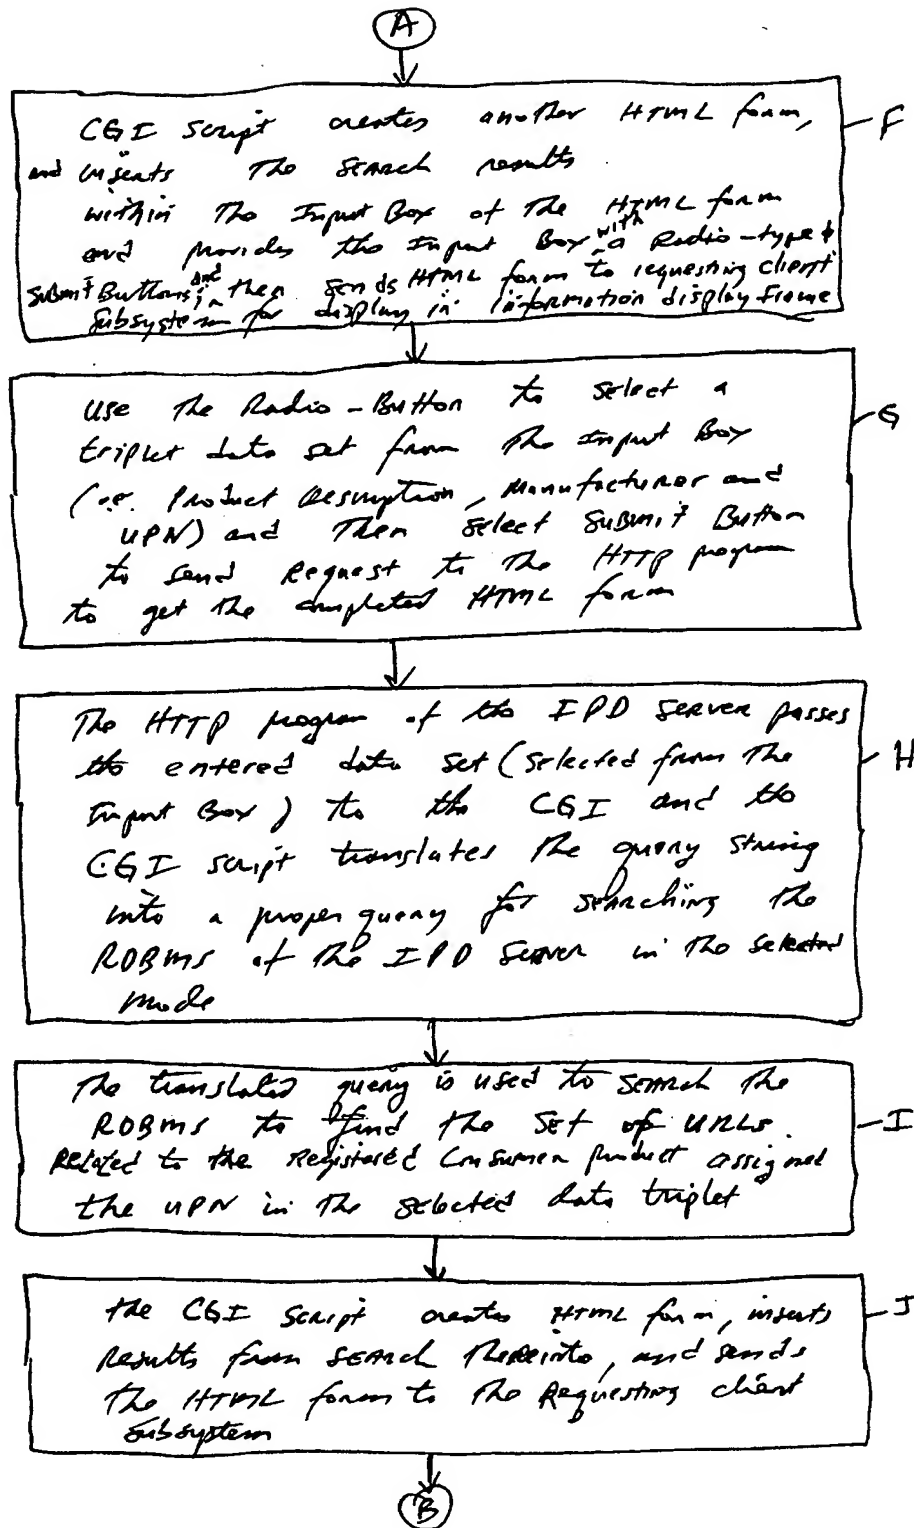 A
CGI Script creates another HTML form, F
and inserts the SEARCH results
within The Input Box of The HTML form
and provides the Input Box with a Radio-type &
Submit Buttons, and then sends HTML form to requesting client
Subsystem for display in information display frame
Use The Radio-Button to select a
triplet data set from The Input Box G
(i.e. Product Description, Manufacturer and
UPN) and Then select Submit Button
to send Request to The HTTP program
to get the completed HTML form
The HTTP program of the IPD Server passes
the entered data set (selected from The H
Input Box) to the CGI and the
CGI script translates The query string
into a proper query for searching the
RDBMS of The IPD Server in the selected
mode
The translated query is used to SEARCH the
RDBMS to find the set of URLs I
Related to the Registered Consumer product assigned
the UPN in The selected data triplet
the CGI Script creates HTML form, inserts J
Results from SEARCH Thereinto, and sends
The HTML form to The Requesting client
Subsystem
B